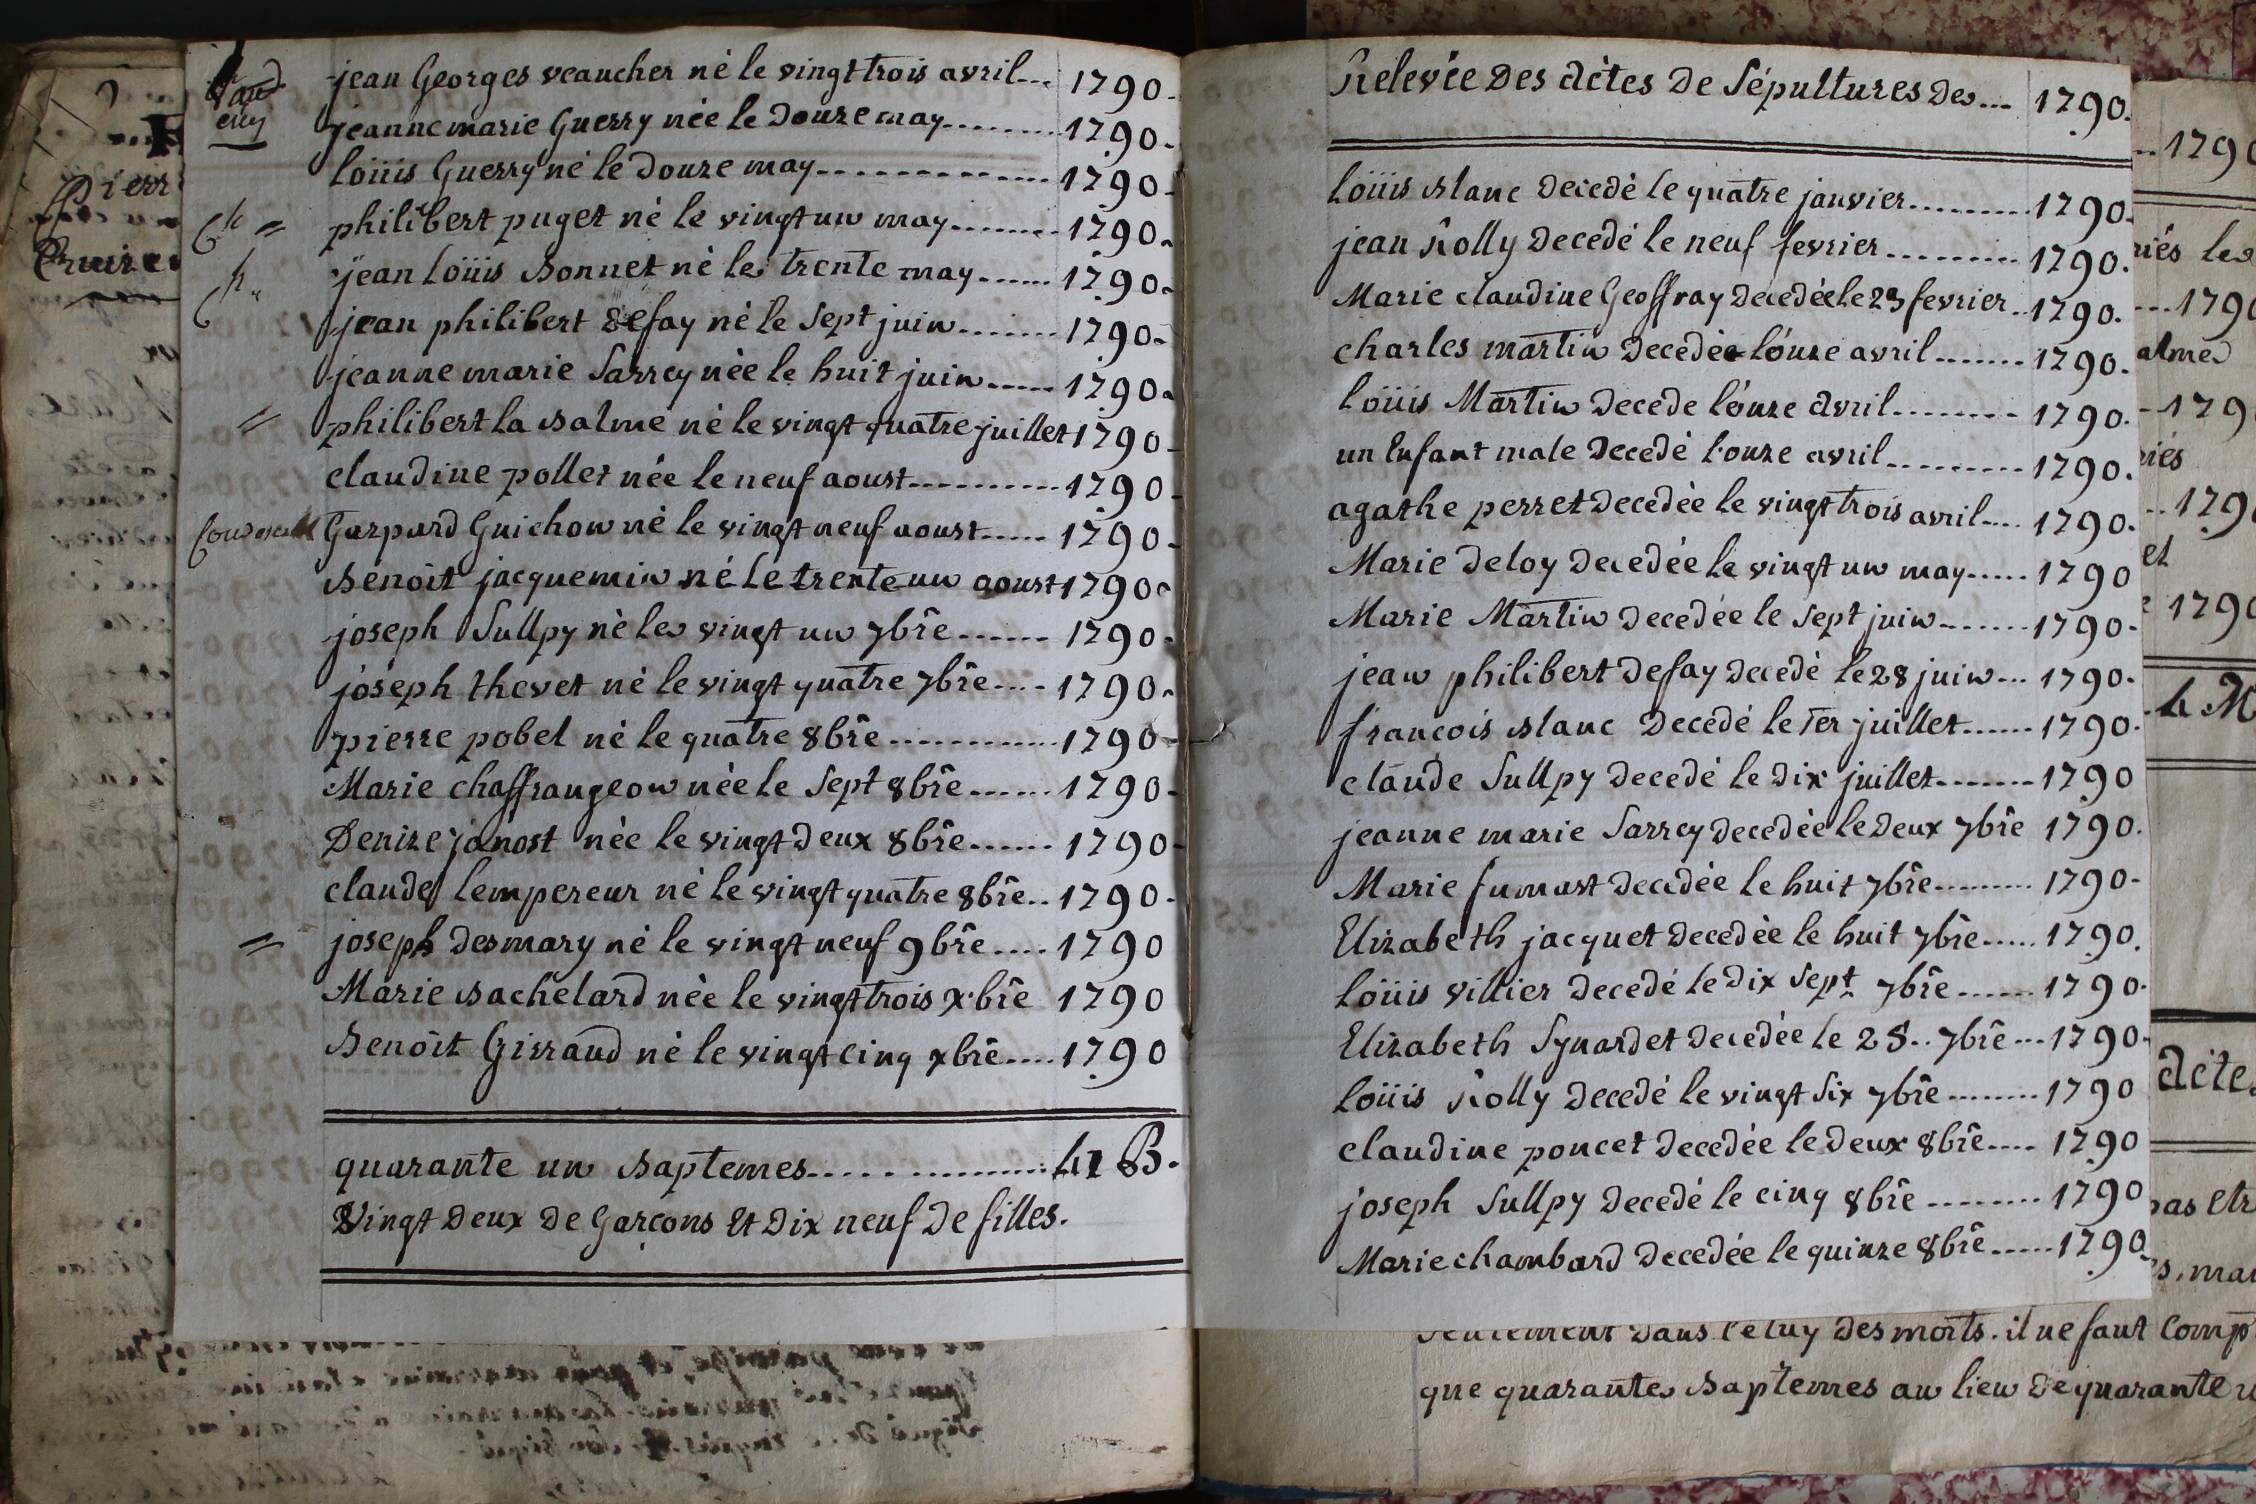 jean Georges veaucher né le vingt trois avril... 1790.
jeanne marie Guerry née le Douze may......... 1790.
loüis Guerry né le Douze may.............. 1790.
philibert puget né le vingt un may........ 1790.
jean loüis Bonnet né le trente may...... 1790.
jean philibert Defay né le Sept juin....... 1790.
jeanne marie Sarrey née le huit juin..... 1790.
philibert la Balme né le vingt quatre juillet 1790.
claudine pollet née le neuf aoust........... 1790.
Gaspard Guichon né le vingt neuf aoust..... 1790.
Benoit jacquemin né Le trente un aoust 1790.
joseph Sullpy né le vingt un 7bre...... 1790.
joseph thevet né le vingt quatre 7bre.... 1790.
pierre pobel né le quatre 8bre............ 1790.
Marie chaffrangeon née le Sept 8bre...... 1790.
Denize janost née le vingt Deux 8bre...... 1790.
claude lempereur né le vingt quatre 8bre.. 1790.
= joseph Desmary né le vingt neuf 9bre.... 1790
Marie Bachelard née le vingt trois x.bre 1790
Benoit Girraud né le vingt cinq xbre.... 1790
quarante un Baptemes................ 41 B.
Vingt Deux De Garçons Et Dix neuf De filles.
Relevée Des Actes De Sépultures De... 1790.
loüis Blanc Decedé le quatre janvier......... 1790.
jean Rolly Decedé le neuf fevrier......... 1790.
Marie claudine Geoffray Decedée le 23 fevrier.. 1790.
charles martin Decedée l'onze avril....... 1790.
loüis Martin Decede l'onze Avril........ 1790.
un Enfant male Decedé l'onze avril......... 1790.
agathe perret Decedée le vingt trois avril.... 1790.
Marie Deloy Decedée le vingt un may..... 1790
Marie Martin Decedée le Sept juin....... 1790.
jean philibert Defay Decedé le 28 juin... 1790.
francois Blanc Decedé le 1er juillet...... 1790.
claude Sullpy Decedé le Dix juillet....... 1790
jeanne marie Sarrey Decedée le Deux 7bre 1790.
Marie fumast Decedée le huit 7bre......... 1790.
Elizabeth jacquet Decedée le huit 7bre..... 1790.
loüis villier Decedé le Dix Sept 7bre...... 1790.
Elizabeth Synardet Decedée le 25.. 7bre... 1790.
loüis Rolly Decedé le vingt Six 7bre........ 1790
claudine poncet Decedée le Deux 8bre.... 1790
joseph Sullpy Decedé le cinq 8bre........ 1790
Marie chambard Decedée le quinze 8bre..... 1790.
Dans Celuy Des morts. il ne faut
que quarante Baptemes au lieu De quarante